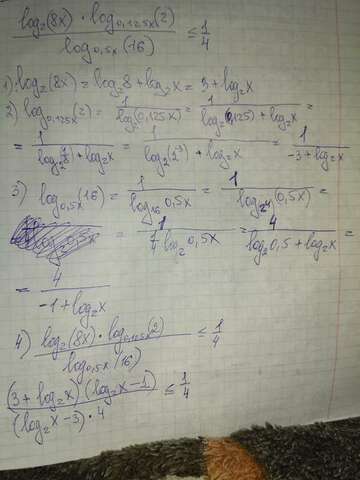 log₂(8x) · log₀,₁₂₅ₓ(2) / log₀,₅ₓ(16) ≤ 1/4
1) log₂(8x) = log₂8 + log₂x = 3 + log₂x
2) log₀,₁₂₅ₓ(2) = 1/log₂(0,125x) = 1/(log₂(0,125) + log₂x) =
= 1/(log₂(1/8) + log₂x) = 1/(log₂(2⁻³) + log₂x) = 1/(-3 + log₂x)
3) log₀,₅ₓ(16) = 1/log₁₆0,5x = 1/log₂⁴(0,5x) =
= 1/(1/4 log₂0,5x) = 4/(log₂0,5 + log₂x) =
= 4/(-1 + log₂x)
4) log₂(8x) · log₀,₁₂₅ₓ(2) / log₀,₅ₓ(16) ≤ 1/4
(3 + log₂x)(log₂x - 1) / (log₂x - 3) · 4 ≤ 1/4